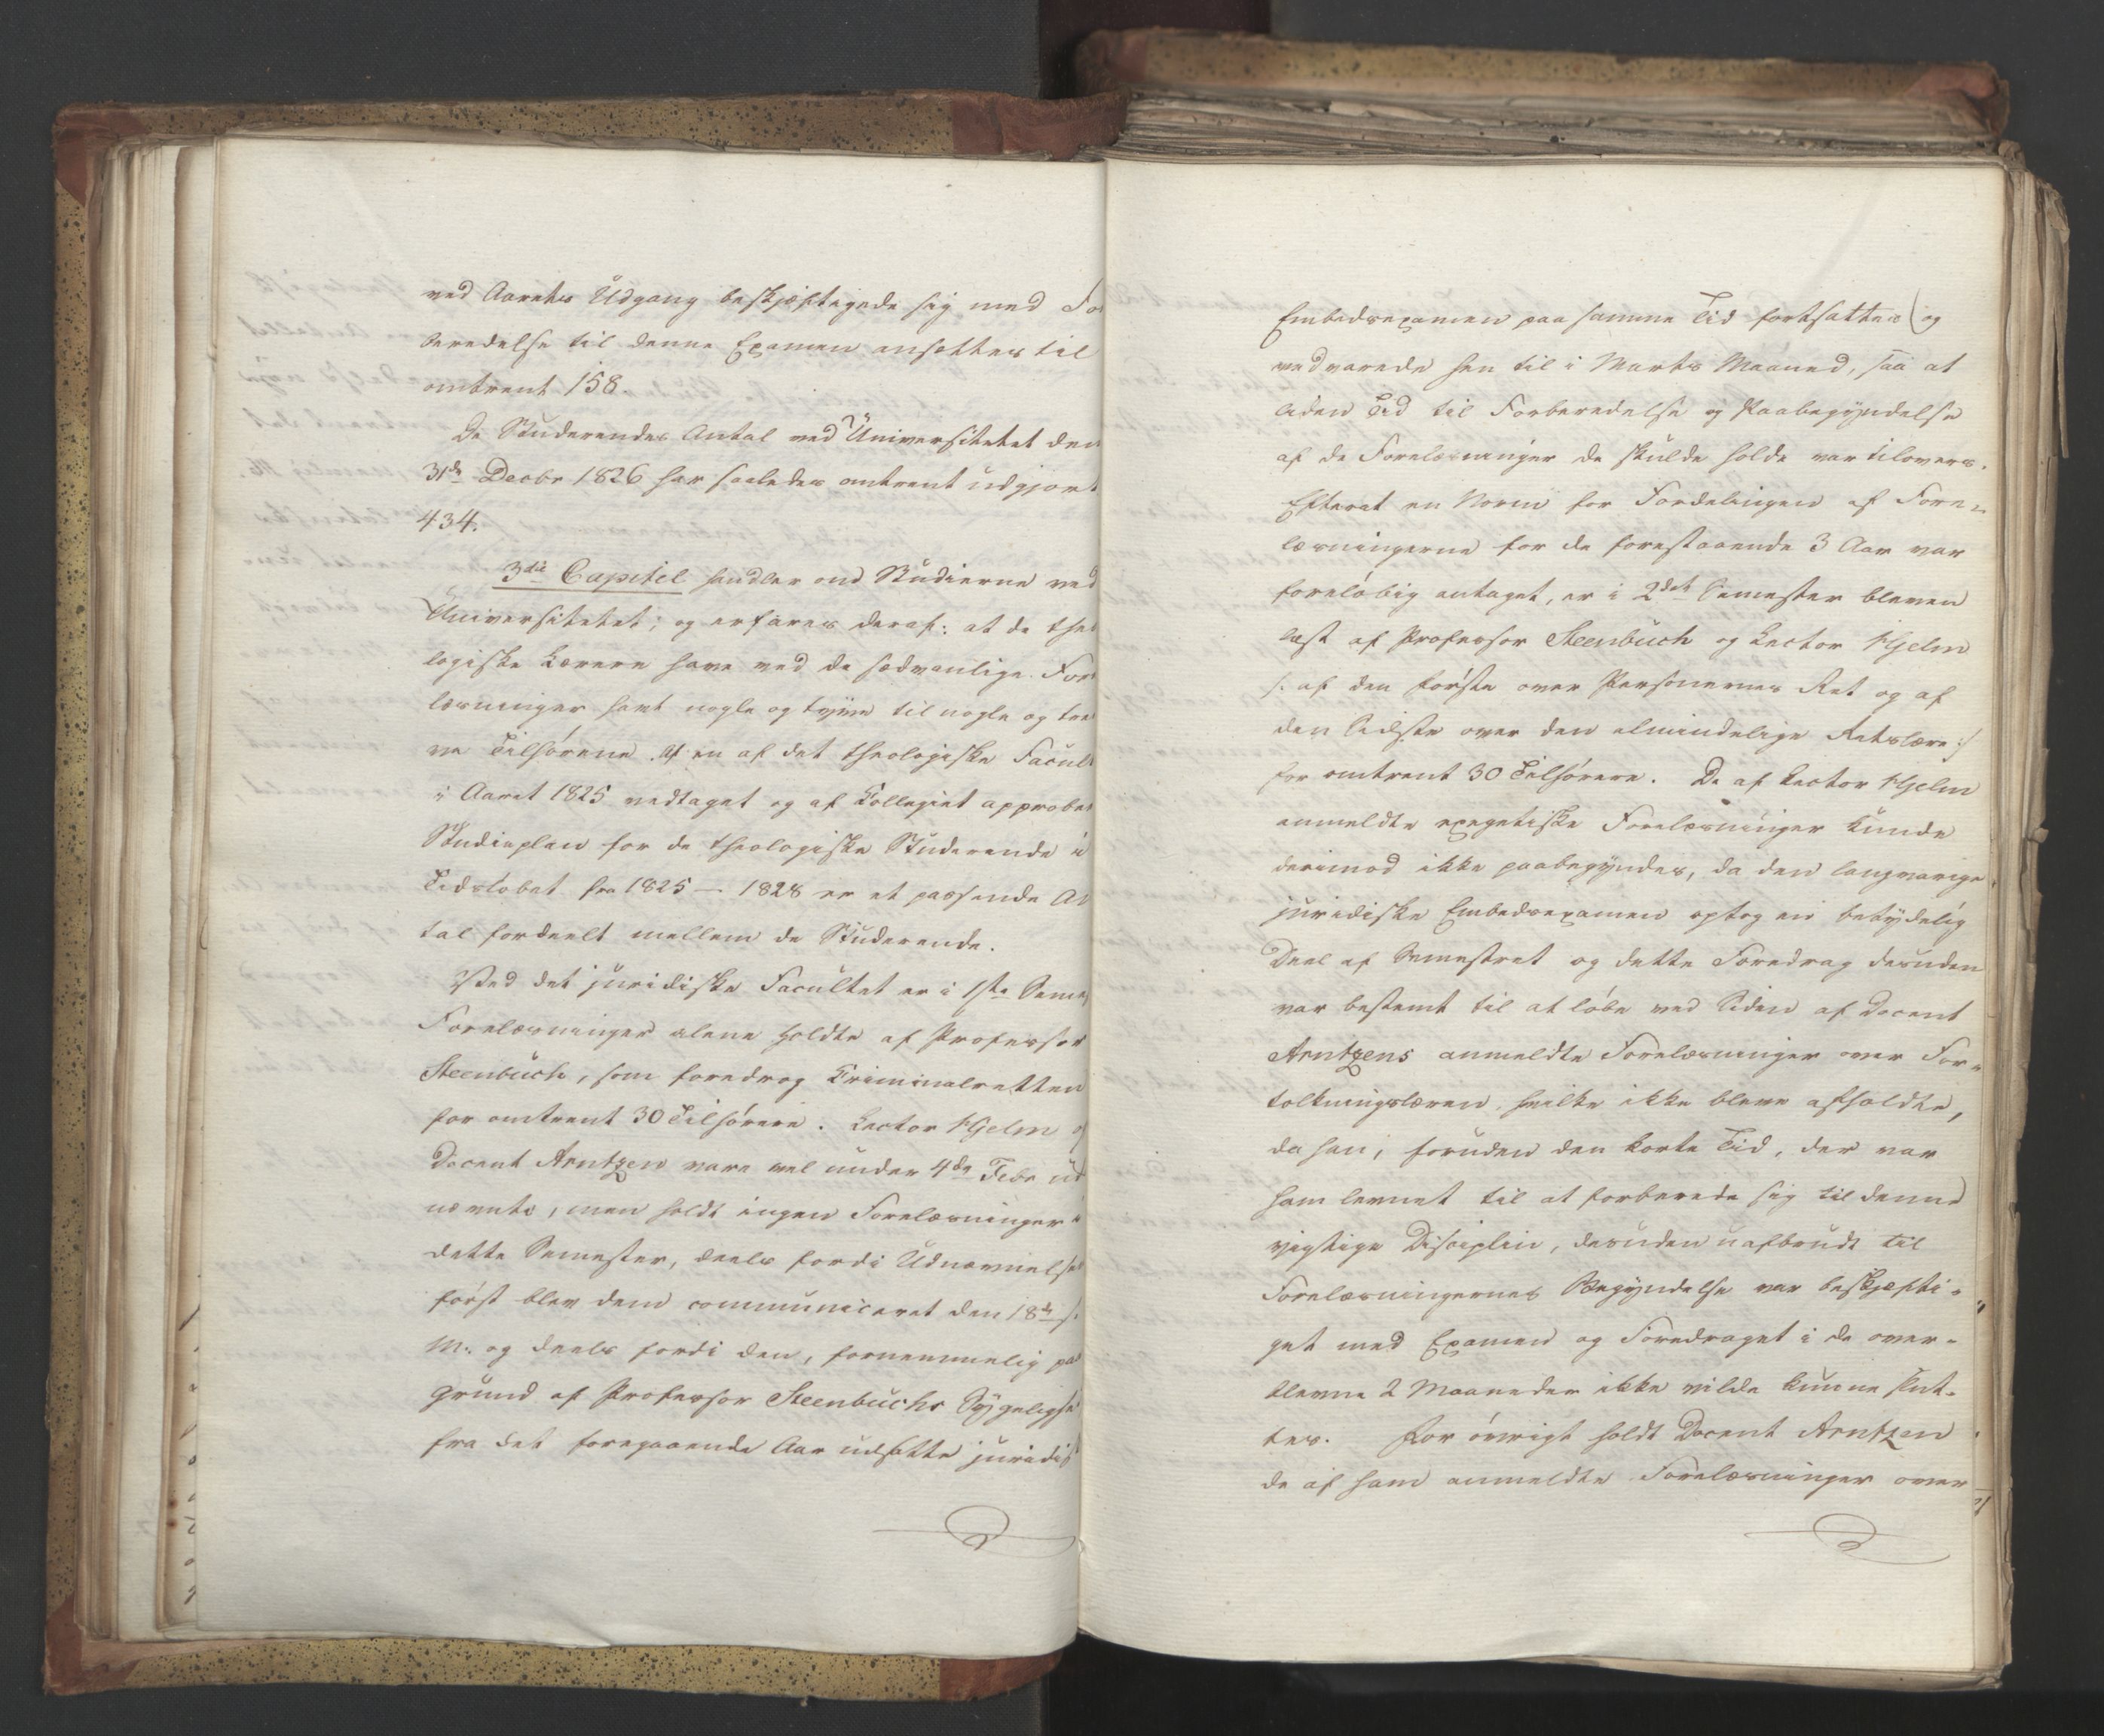 ved Aarets Udgang beskjæftigede sig med For
beredelse til denne Examen ansættes til
omtrent 158.
De Studerendes Antal ved Universitetet den
31de Decbr 1826 har saaledes omtrent udgjort
434.
3die Capitel handler om Studierne ved
Universitetet; og erfares deraf: at de theo
logiske Lærere have med de sædvanlige Fore
læsninger havt nogle og tyve til nogle og tredi
ve Tilhørere. Af en af det theologiske Facult
i Aaret 1825 vedtaget og af Collegiet approbert
Studieplan for de theologiske Studerende i
Tidsløbet fra 1825 – 1828 er et passende An
tal fordeelt mellem de Studerende.
Ved det juridiske Facultet er i 1ste Semes
Forelæsninger alene holdte af Professor
Steenbuch, som foredrog Criminalretten
for omtrent 30 Tilhørere. Lector Hjelm og
Docent Arntzen vare vel under 4de Febr ud
nævnte, men holdt ingen Forelæsninger i
dette Semester, deels fordi Udnævnelsen
først blev dem communiceret den 18de s.
M. og deels fordi den, fornemmelig paa
Grund af Professor Steenbuchs Sygelighed
fra det foregaaende Aar udsatte juridisk
Embedsexamen paa samme Tid fortsattes og
vedvarede hen til i Marts Maaned, saa at
liden Tid til Forberedelse og Paabegyndelse
af de Forelæsninger de skulde holde var tilovers.
Efterat en Norm for Fordelingen af Fore-
læsningerne for de forestaaende 3 Aar var
foreløbig antaget, er i 2det Semester bleven
læst af Professor Steenbuch og Lector Hjelm
/: af den første over Personernes Ret og af
den Sidste over den almindelige Retslære :/
for omtrent 30 Tilhørere. De af Lector Hjelm
anmeldte exegetiske Forelæsninger kunde
derimod ikke paabegyndes, da den langvarige
juridiske Embedsexamen optog en betydelig
Deel af Semestret og dette Foredrag desuden
var bestemt til at løbe ved Siden af Docent
Arntzens anmeldte Forelæsninger over For-
tolkningslæren, hvilke ikke bleve afholdte,
da han, foruden den korte Tid, der var
ham levnet til at forberede sig til denne
vigtige Disciplin, desuden uafbrudt til
Forelæsningernes Begyndelse var beskjæfti-
get med Examen og Foredraget i de over-
blevne 2 Maaneder ikke vilde kunne slut-
tes. For øvrigt holdt Docent Arntzen
de af ham anmeldte Forelæsninger over